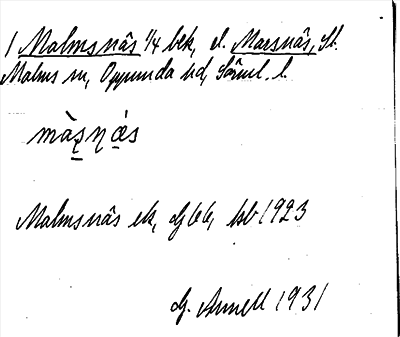 1 Malmsnäs 1/4 bek, el. Marsnäs, St.
Malms sn, Oppunda hd, Söml. l.
màs̱ṉą́s
Malmsnäs ek, dj 66, hb 1923
dj. Annell 1931